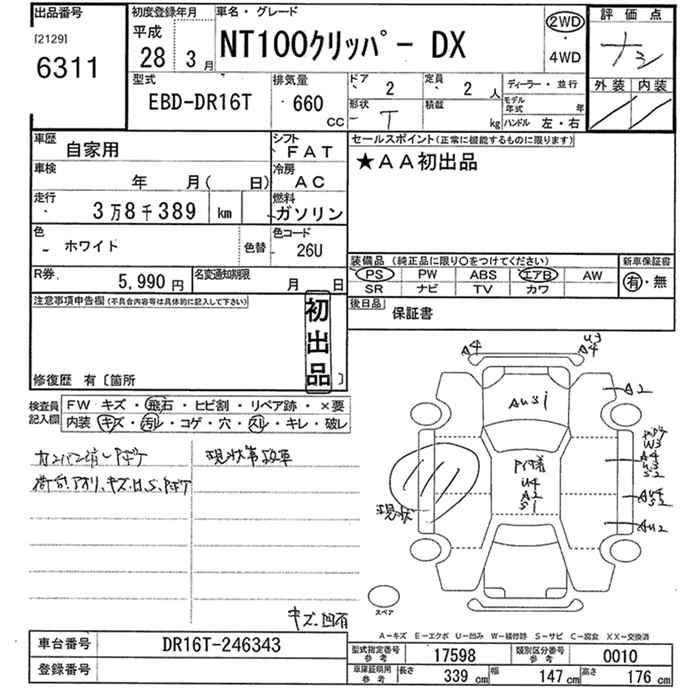 出品番号
[2129]
6311
初度登録年月
平成
28 3月
車名・グレード
NT100クリッパー DX
2WD
・
4WD
評価点
外装 内装
型式
EBD-DR16T
排気量
660
CC
ドア
2
定員
2 人
形状
T
積載
kg
ディーラー・並行
モデル年式 年
ハンドル 左・右
車歴
自家用
シフト
FAT
車検
年 月( 日)
冷房
AC
走行
3万8千389 km
燃料
ガソリン
色
ホワイト
色替
色コード
26U
R券
5,990円
名変通知期限
月 日
セールスポイント(正常に機能するものに限ります)
★AA初出品
装備品 (純正品に限り○をつけてください)
PS PW ABS エアB AW
SR ナビ TV カワ
新車保証書
有・無
後日品
保証書
注意事項申告欄(不具合内容等は具体的に記入して下さい)
初出品
修復歴 有〔箇所 〕
検査員記入欄
FW キズ・飛石・ヒビ割・リペア跡・×要
内装 キズ・汚レ・コゲ・穴・スレ・キレ・破レ
現状
A4
U3
A4
A2
AUS1
U4
A2
S1
W3
A4
AU2
スペア
A-キズ E-エクボ U-凹み W-補修跡 S-サビ C-腐食 XX-交換済
車台番号
DR16T-246343
登録番号
型式指定番号 参考
17598
類別区分番号 参考
0010
車庫証明用 参考
長さ 339 cm
幅 147 cm
高さ 176 cm